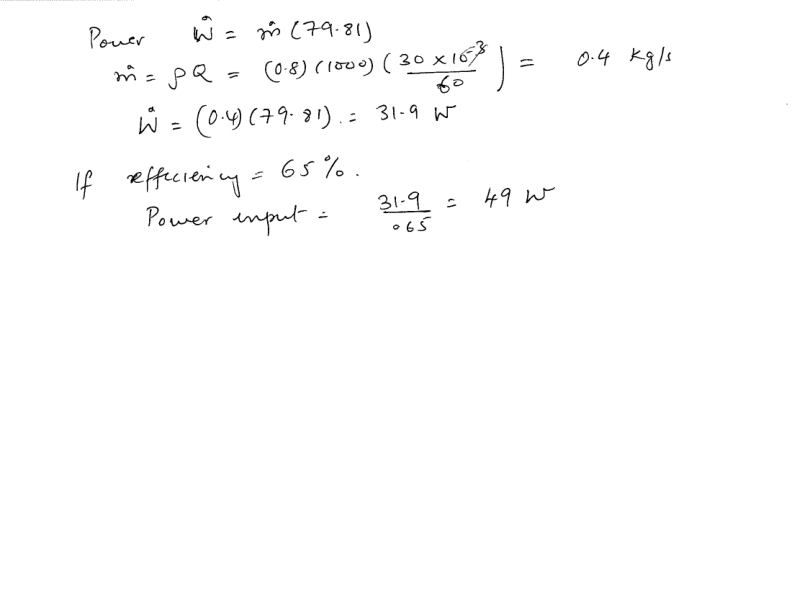 Power Ẇ = ṁ (79.81)
ṁ = ρQ = (0.8) (1000) (30 × 10⁻³ / 60) = 0.4 Kg/s
Ẇ = (0.4) (79.81) = 31.9 W
If efficiency = 65%.
Power input = 31.9 / .65 = 49 W